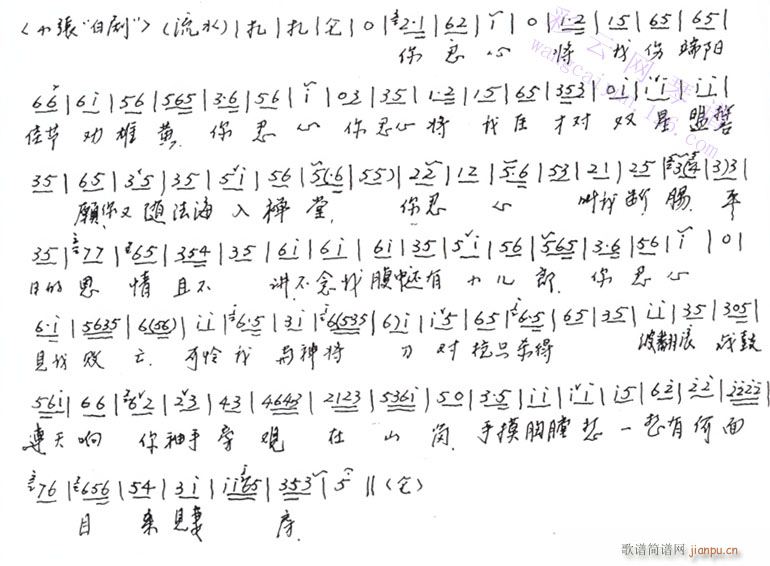 <小張"白剧">(流水)|扎|扎|仓|0|2·1|62|i|0|1·2|15|65|65|
你忍心将我伤端阳
66|6i|56|565|3·6|56|i|03|35|1·2|15|65|353|0i|ii|ii|
佳节劝雄黄你忍心你忍心将我 才对双星盟誓
35|65|35|35|5i|56|5(·6|55)|22|12|5·6|53|21|25|3(4|3)3|
願你又随法海入禅堂你忍心叫我断腸平
35|77|65|354|35|6i|6i|6i|35|5i|56|565|3·6|56|i|0|
日的恩情且不讲不念我腹中还有小儿郎你忍心
6·i|5635|6(56)|ii|6·5|3i|6(535|6)i|i5|65|6·5|65|35|ii|35|305|
見我败亡可怜我与神将刀对枪只杀得波翻浪战鼓
56i|66|62|23|43|4643|2123|536i|50|3·5|ii|ii|i5|62|22|i2i2|
連天响你袖手旁观在山岗手摸胸膛想一想有何面
76|656|54|31|ii65|353|5||(仓)
目来見妻房
歌谱简谱网 jianpu.cn